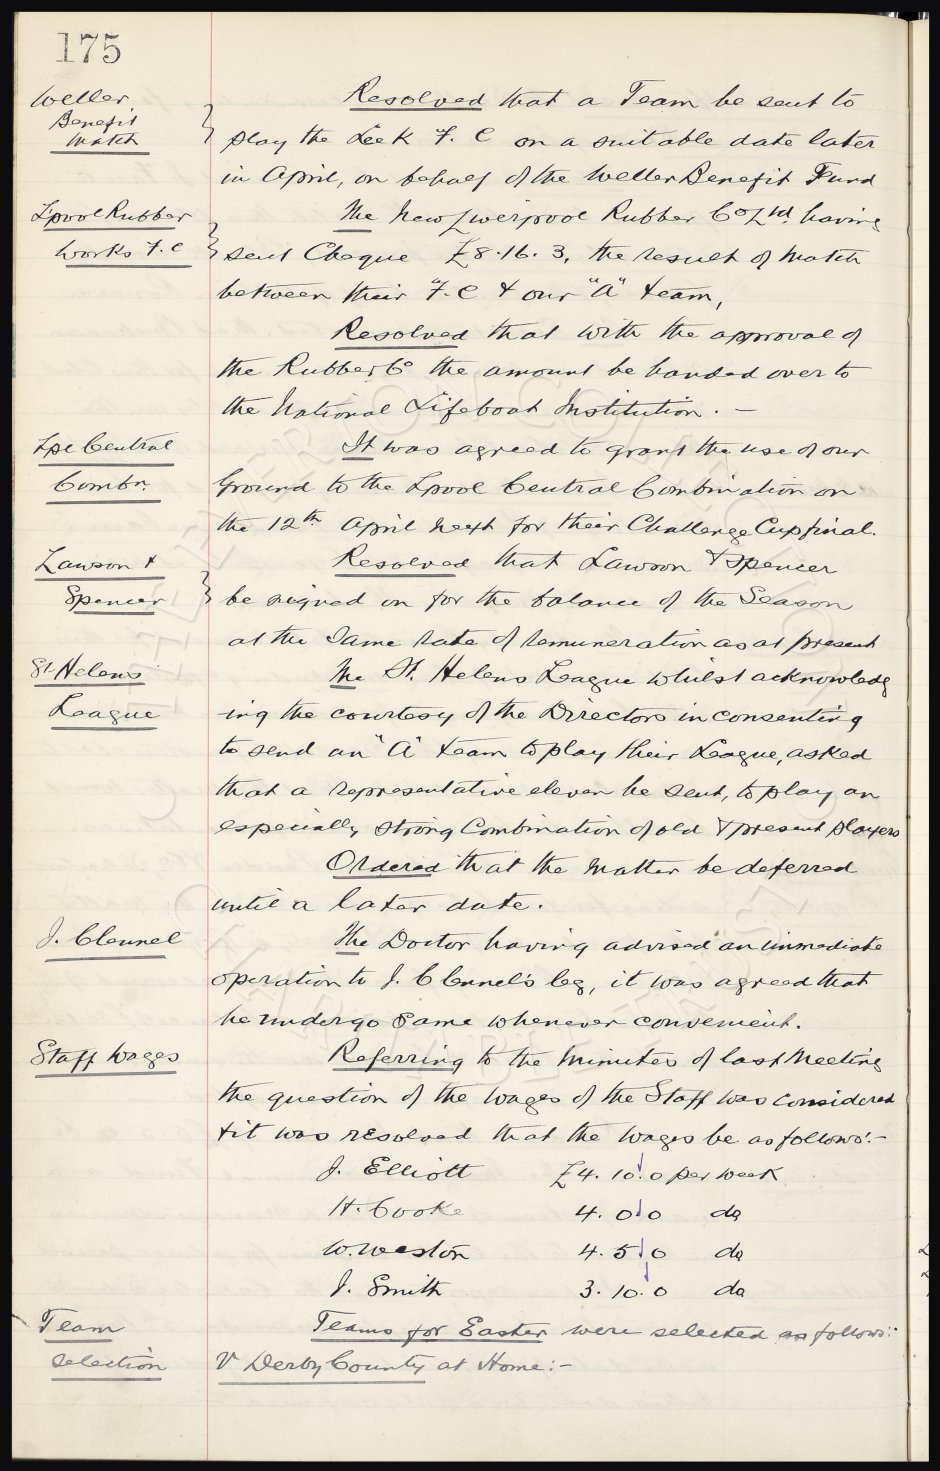 175
Weller
Benefit
Match
Resolved that a Team be sent to
play the Leek F. C on a suitable date later
in April, on behalf of the Weller Benefit Fund
L'pool Rubber
Works F. C
The New Liverpool Rubber Co Ltd. having
sent Cheque £8. 16. 3, the result of Match
between their "F. C & our "A" team,
Resolved that with the approval of
the Rubber Co the amount be handed over to
the National Lifeboat Institution. —
Lpl Central
Combn.
It was agreed to grant the use of our
Ground to the Lpool Central Combination on
the 12th April next for their Challenge Cup final.
Lawson &
Spencer
Resolved that Lawson & Spencer
be signed on for the balance of the Season
at the same rate of remuneration as at present
St. Helens
League
The St. Helens League whilst acknowledg
-ing the courtesy of the Directors in consenting
to send an "A" team to play their League, asked
that a representative eleven be sent, to play an
especially strong Combination of old & present players
Ordered that the matter be deferred
until a later date.
J. Clennel
The Doctor having advised an immediate
operation to J. Clennel's leg, it was agreed that
he undergo same whenever convenient.
Staff Wages
Referring to the Minutes of last Meeting
the question of the wages of the Staff was considered
& it was resolved that the wages be as follows:-
J. Elliott £4. 10. 0 per week
H. Cooke 4. 0 0 do
W. Weston 4. 5 0 do
J. Smith 3. 10. 0 do
Team
Selection
Teams for Easter were selected as follows:-
V Derby County at Home:-